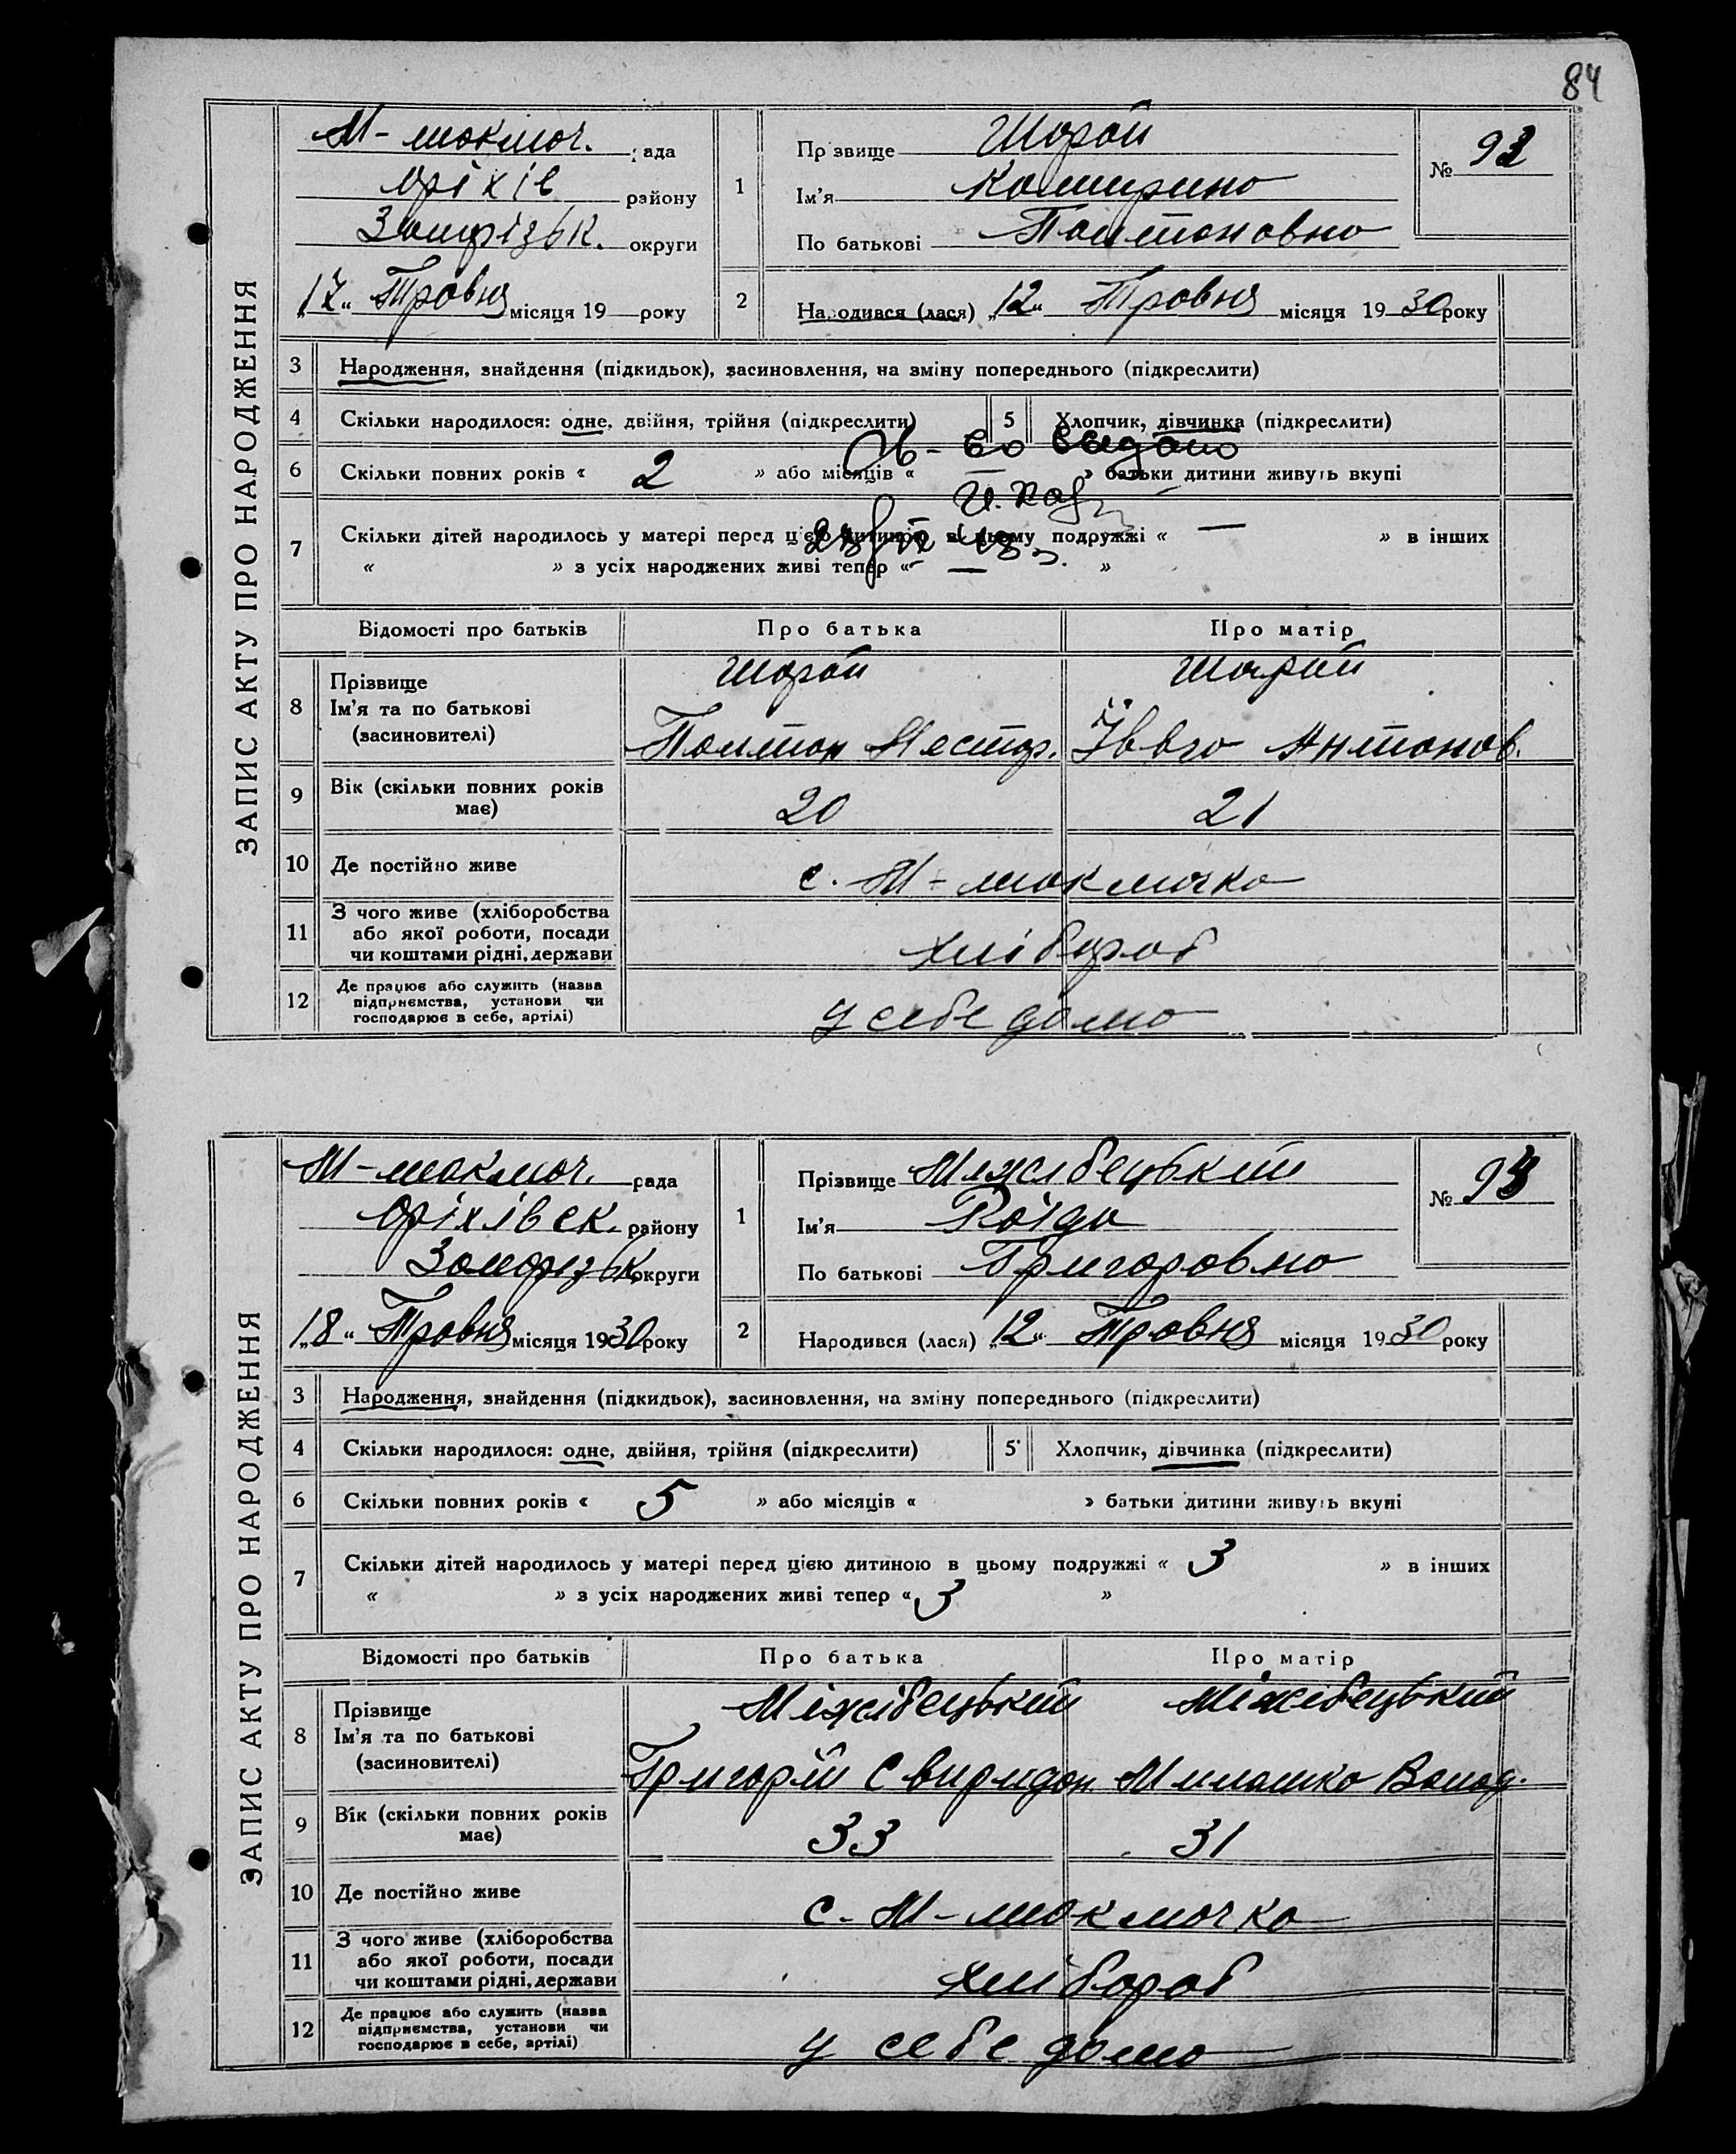 84
ЗАПИС АКТУ ПРО НАРОДЖЕННЯ
М-токмоч. рада
Оріхів району
Запорізьк. округи
„17“ Травня місяця 19 року
1
Прізвище Шарай
Ім'я Катирина
По батькові Платоновна
№ 92
2
Народився (лася) „12“ Травня місяця 1930 року
3 Народження, знайдення (підкидьок), засиновлення, на зміну попереднього (підкреслити)
4 Скільки народилося: одне, двійня, трійня (підкреслити)
5 Хлопчик, дівчинка (підкреслити)
Св-во выдано
6 Скільки повних років « 2 » або місяців « — » батьки дитини живуть вкупі
7 Скільки дітей народилось у матері перед цією дитиною в цьому подружжі « — » в інших
« » з усіх народжених живі тепер « — »
Відомості про батьків Про батька Про матір
8 Прізвище Шарай Шарай
Ім'я та по батькові
(засиновителі) Платон Нестор. Антонов.
9 Вік (скільки повних років має) 20 21
10 Де постійно живе с. М-токмачка
11 З чого живе (хліборобства
або якої роботи, посади
чи коштами рідні, держави хлібороб
12 Де працює або служить (назва
підприємства, установи чи
господарює в себе, артілі) у себе дома
ЗАПИС АКТУ ПРО НАРОДЖЕННЯ
М-токмоч. рада
Оріхівськ. району
Запорізьк округи
„18“ Травня місяця 1930 року
1
Прізвище Міжібецький
Ім'я Раїда
По батькові Григоровна
№ 93
2
Народився (лася) „12“ Травня місяця 1930 року
3 Народження, знайдення (підкидьок), засиновлення, на зміну попереднього (підкреслити)
4 Скільки народилося: одне, двійня, трійня (підкреслити)
5 Хлопчик, дівчинка (підкреслити)
6 Скільки повних років « 5 » або місяців « » батьки дитини живуть вкупі
7 Скільки дітей народилось у матері перед цією дитиною в цьому подружжі « 3 » в інших
« » з усіх народжених живі тепер « 3 »
Відомості про батьків Про батька Про матір
8 Прізвище Міжібецький Міжібецький
Ім'я та по батькові
(засиновителі) Григорій Свиридон. Милашка Волод.
9 Вік (скільки повних років має) 33 31
10 Де постійно живе с. М-токмачка
11 З чого живе (хліборобства
або якої роботи, посади
чи коштами рідні, держави хлібороб
12 Де працює або служить (назва
підприємства, установи чи
господарює в себе, артілі) у себе дома